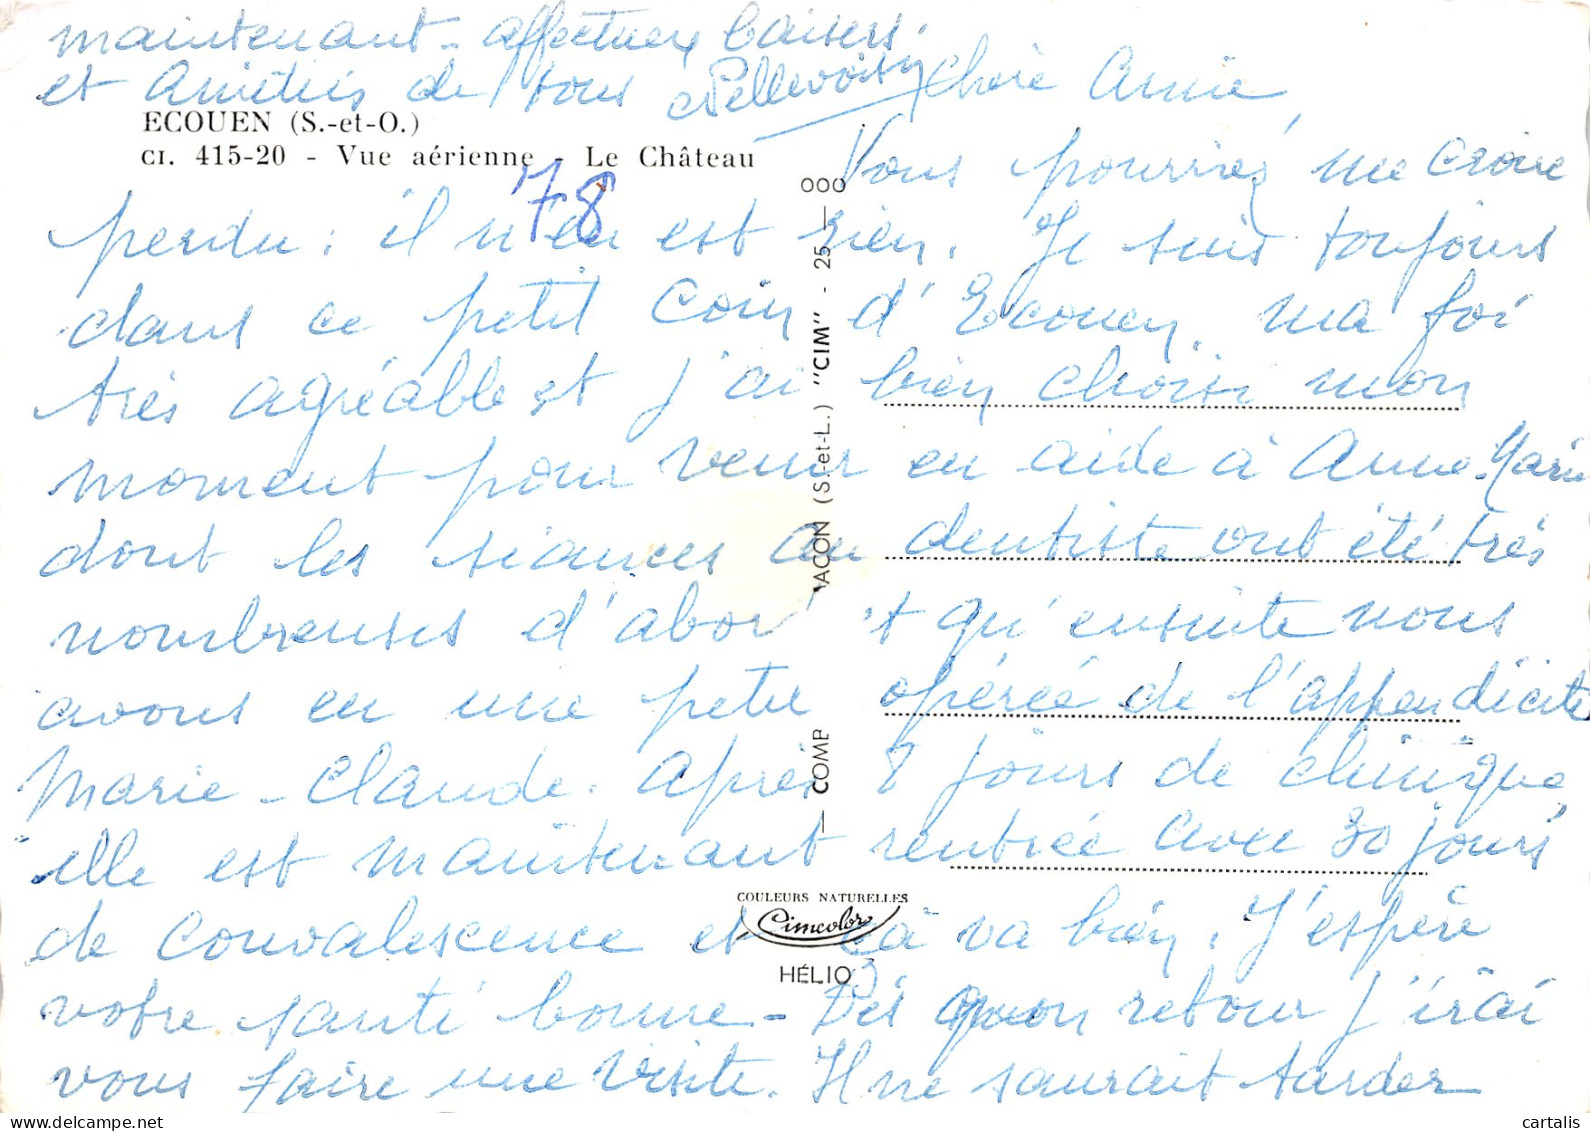 maintenant - affectueux baisers.
et Amitiés de tous Pellevoisin
ECOUEN (S.-et-O.)
CI. 415-20 - Vue aérienne - Le Château
78
Chère Amie,
Vous pourriez me croire
perdu : il n'en est rien. Je suis toujours
dans ce petit coin d'Ecouen, ma foi
très agréable et j'ai bien choisi mon
moment pour venir en aide à Anne-Marie
dont les séances au dentiste ont été très
nombreuses d'abor 't qu'ensuite nous
avons eu une petite opérée de l'appendicite
Marie-Claude. Après 8 jours de clinique
elle est maintenant rentrée avec 30 jours
de convalescence et çà va bien. J'espère
votre santé bonne - Dès mon retour j'irai
vous faire une visite. Il ne saurait tarder
COMB MACON (S.-et-L.) "CIM" - 25 — 000
COULEURS NATURELLES
Cimcolor
HÉLIO
cartalis